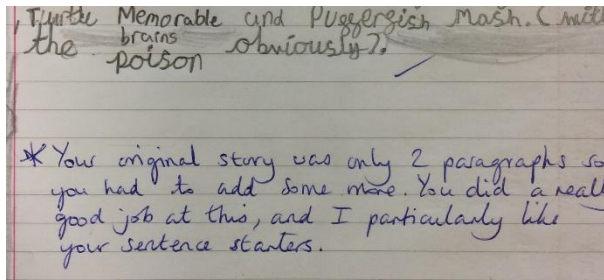 , Turtle Memorable and Puggergish Mash. (
the brains obviously?.
poison
* Your original story was only 2 paragraphs so
you had to add some more. You did a really
good job at this, and I particularly like
your sentence starters.